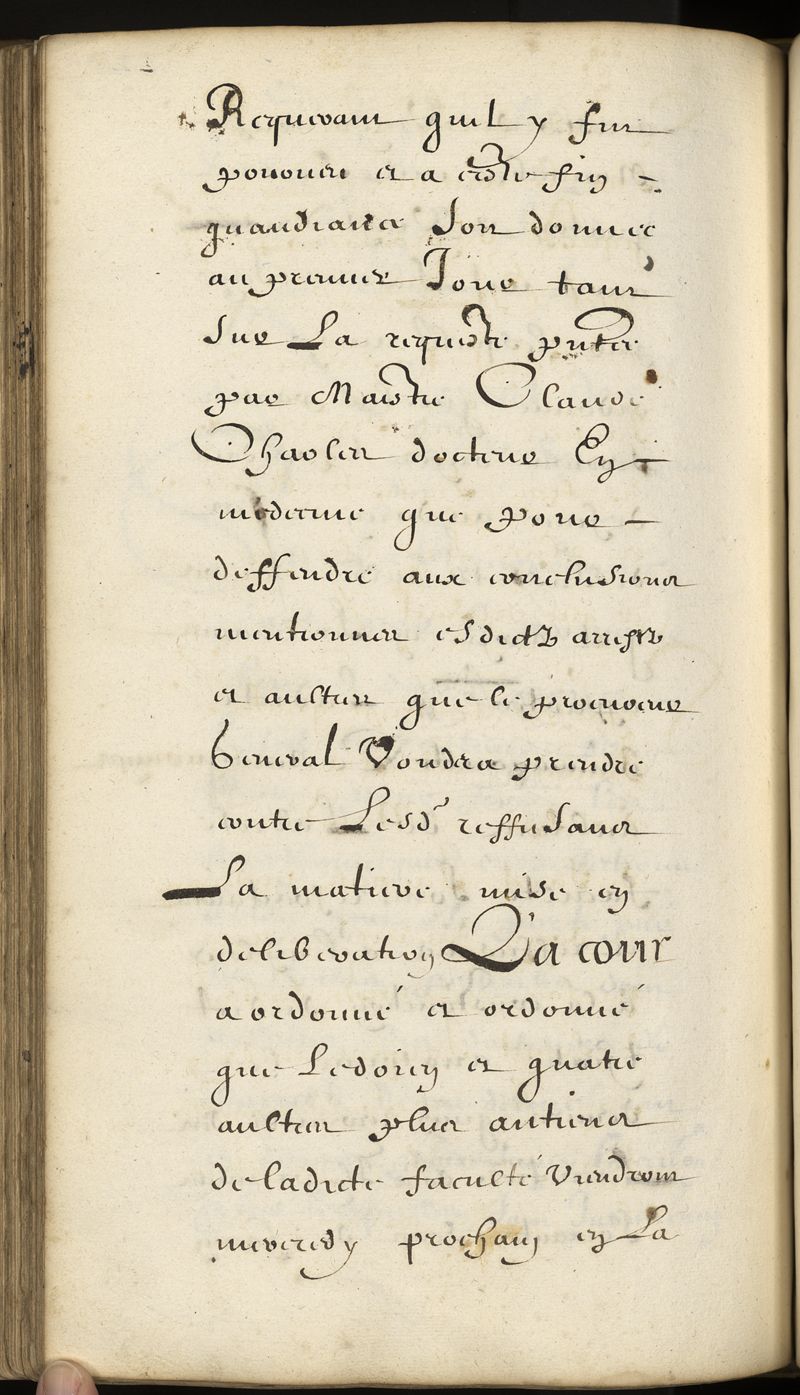 Requerant quil y fut
pourveu et a ceste fin
quaudiance soit donnee
au premier Jour tant
sur La requeste pntee
par Maistre Claude
Charles docteur En
medecine que pour
deffendre aux conclusions
mentionnees esdictz arrestz
et aultres que le procureur
General Voudra prendre
contre Lesd reffusans
La matiere mise en
deliberation La cour
a ordonné et ordonné
que Ledoien et quatre
aultres plus antiens
deladicte faculté Viendront
mercredy prochain en La